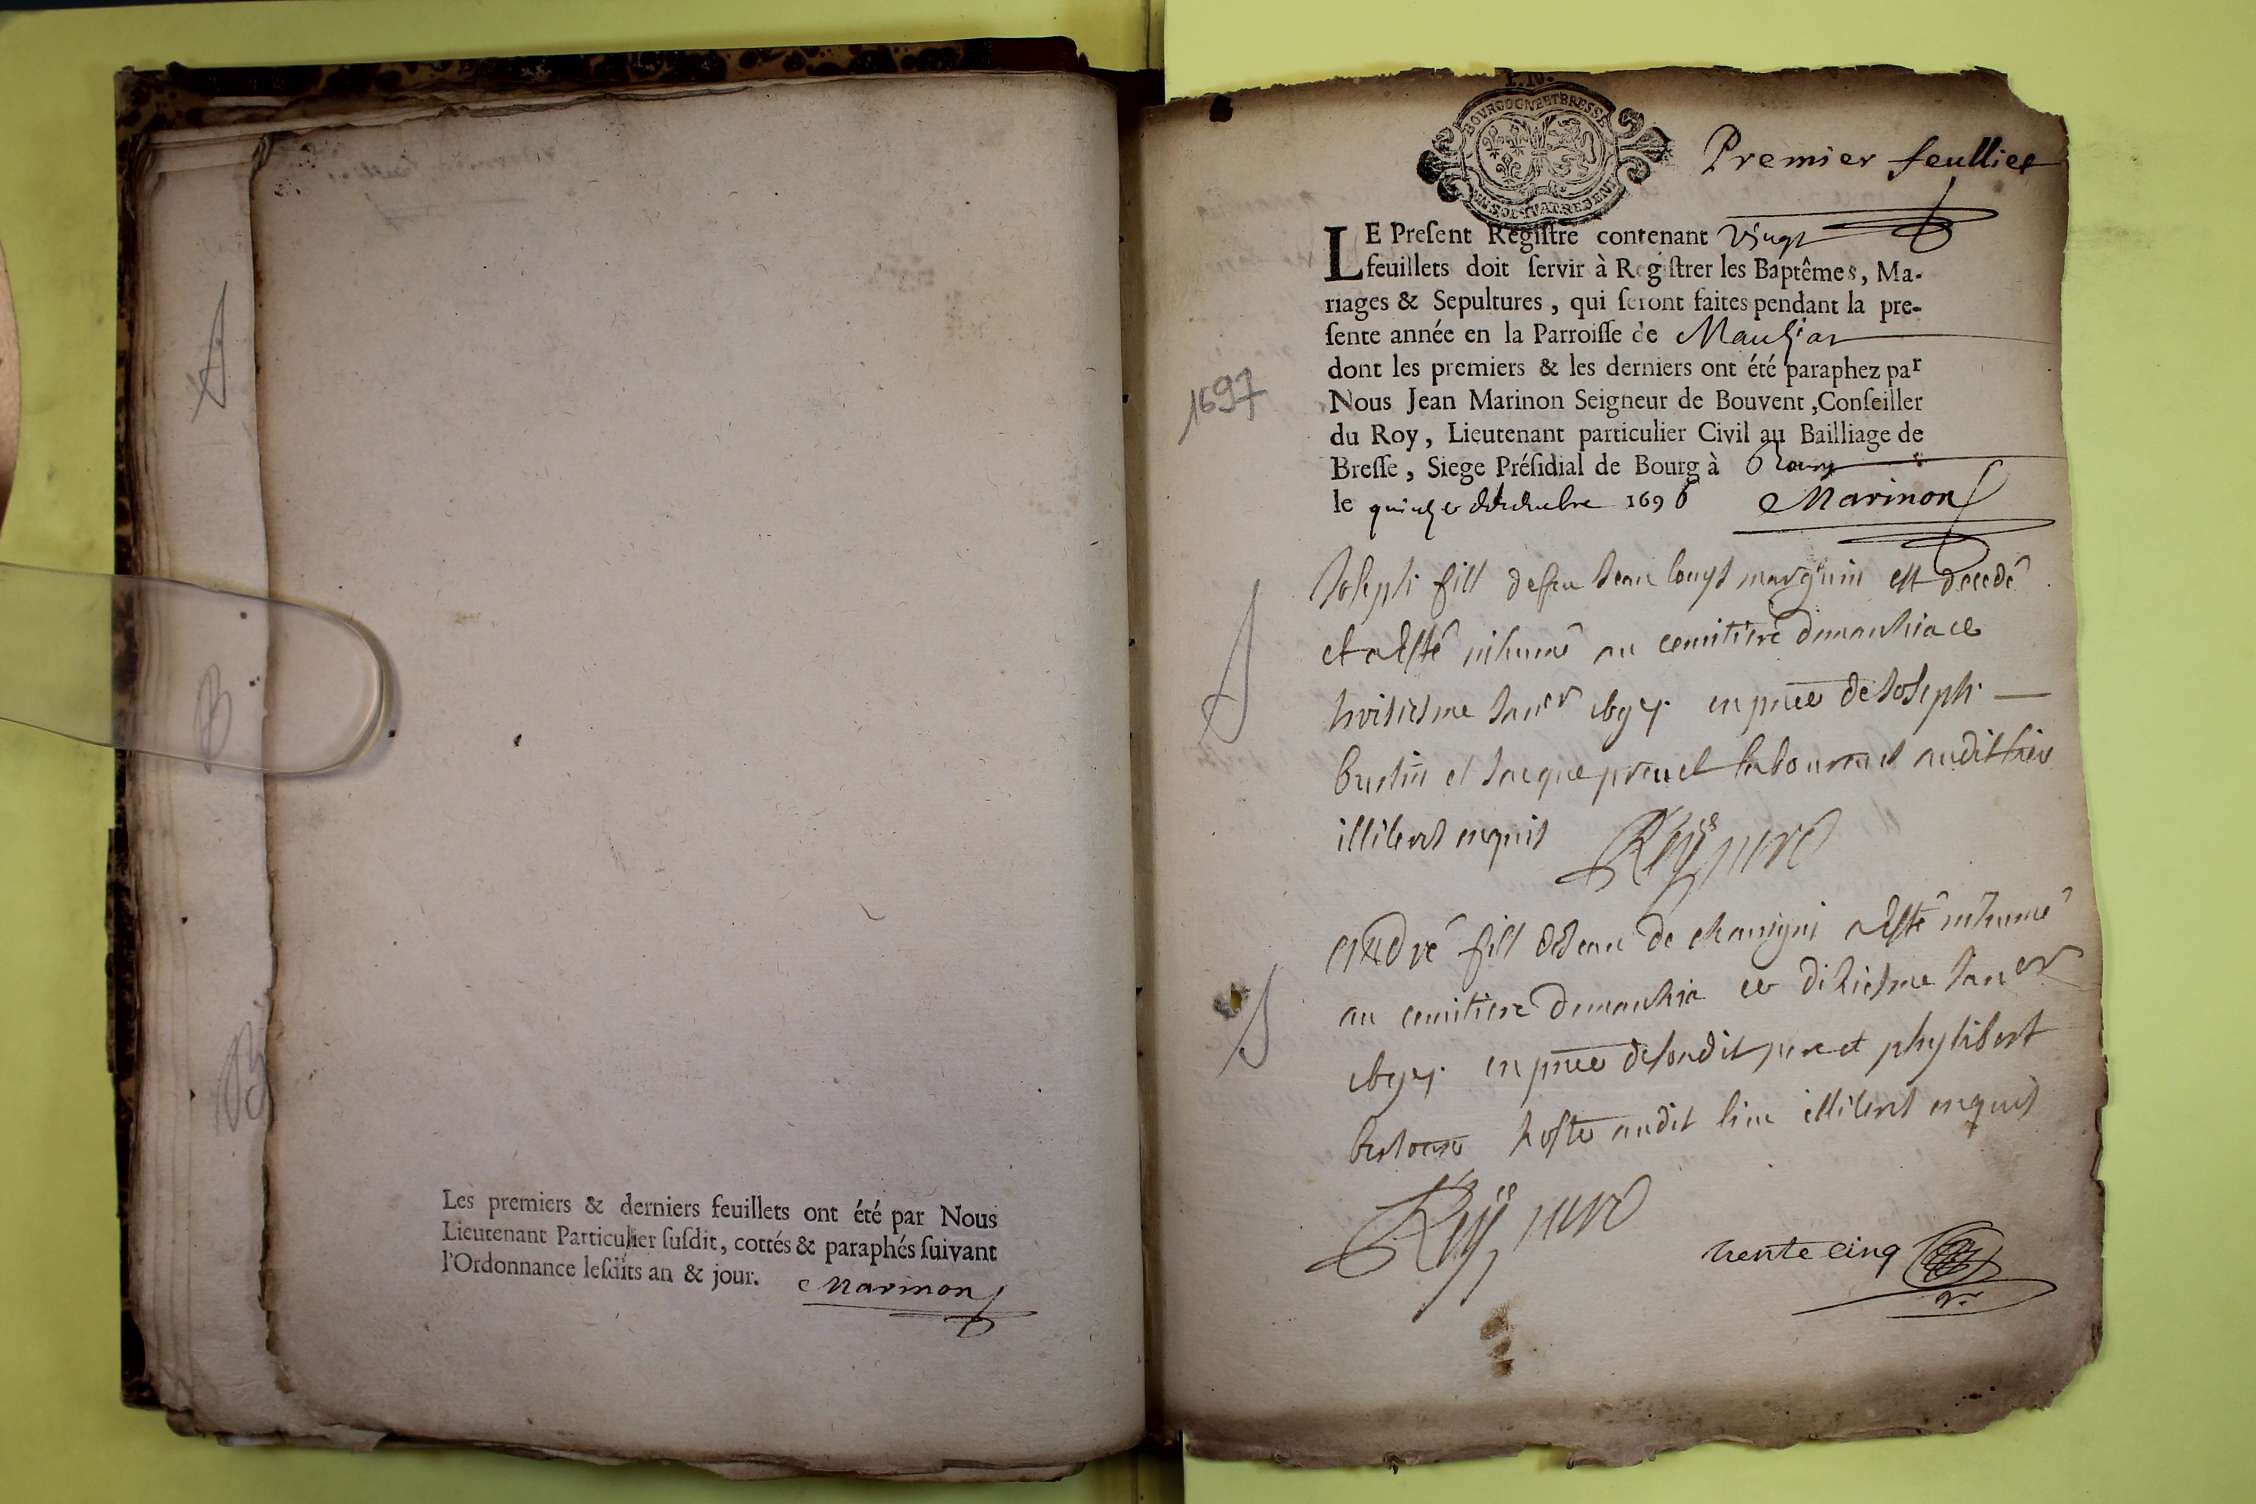 Les premiers & derniers feuillets ont été par Nous
Lieutenant Particulier suſdit, cottés & paraphés ſuivant
l'Ordonnance leſdits an & jour. Marinon
BOURGOGNE ET BRESSE
UN SOL QUATRE DEN
Premier feulliet
LE Preſent Regiſtre contenant vingt
feuillets doit ſervir à Regiſtrer les Baptêmes, Ma-
riages & Sepultures, qui ſeront faites pendant la pre-
ſente année en la Parroiſſe de Mauziat
dont les premiers & les derniers ont été paraphez par
Nous Jean Marinon Seigneur de Bouvent, Conſeiller
du Roy, Lieutenant particulier Civil au Bailliage de
Breſſe, Siege Préſidial de Bourg à Bourg
le quinze decembre 1696 Marinon
1697
Joseph fils de feu Jean louys marguin est decedé
et a Esté inhumé au cemitiere de mauzia ce
en pnce de Joseph
et Jacque audit lieu
illiterés enquis
André fils de Jean de a Esté inhumé
au cemitiere de mauzia ce dixiesme Janer
en pnce de sondit pere et phylibert
hoste audit lieu illiterés enquis
trente cinq
A
B
B
S
S